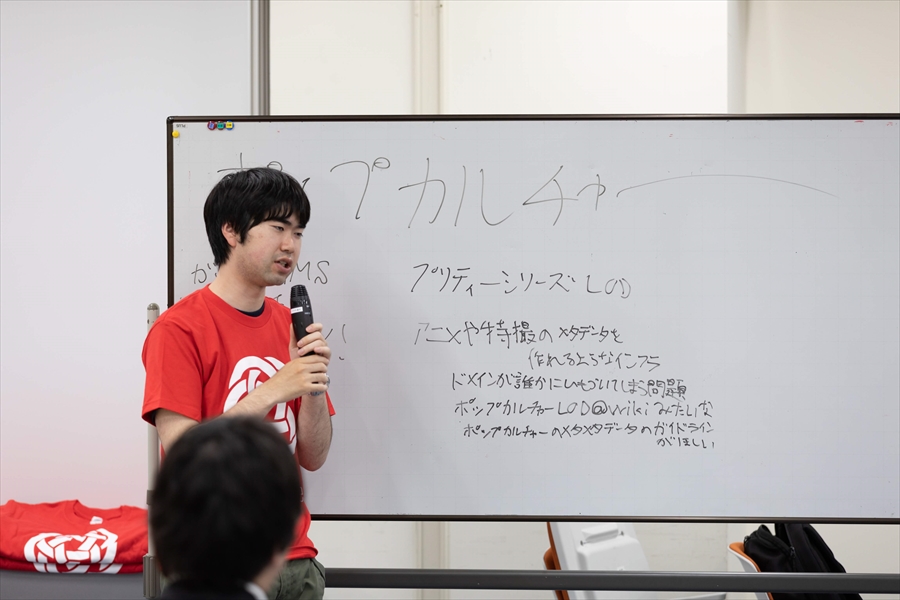 ポップカルチャー
MS
プリティーシリーズLOD
アニメや特撮のメタデータを
作れるようなインフラ
ドメインが誰かにひもづいてしまう問題
ポップカルチャーLOD@wikiみたいな
ポップカルチャーのメタメタデータのガイドライン
がほしい